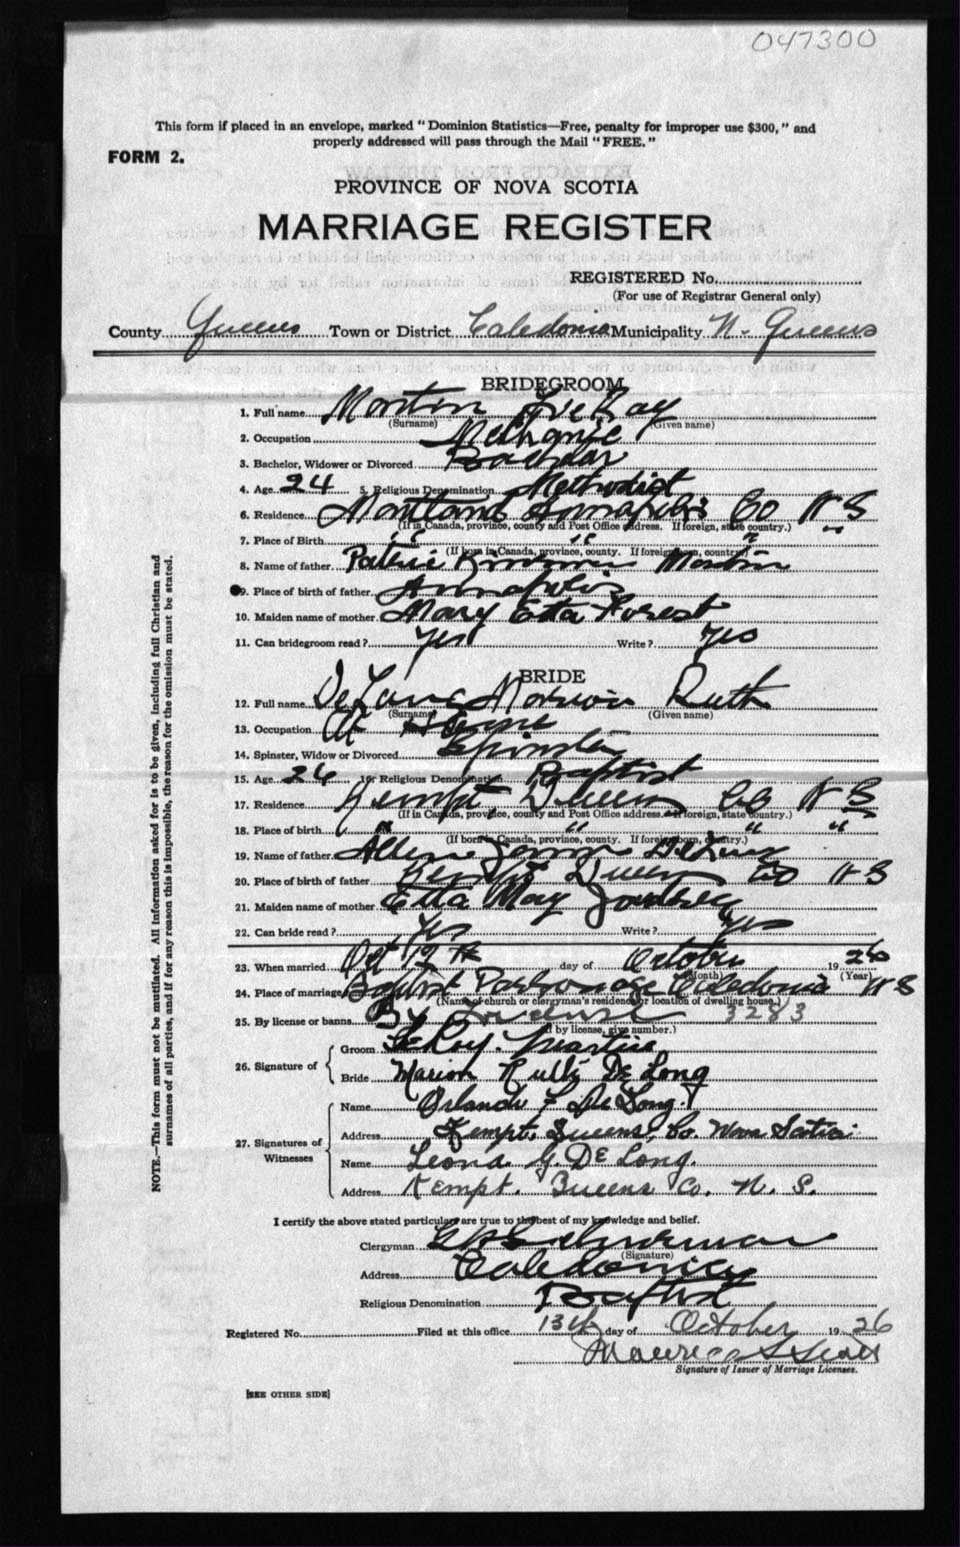 047300
This form if placed in an envelope, marked "Dominion Statistics—Free, penalty for improper use $300," and
properly addressed will pass through the Mail "FREE."
FORM 2.
PROVINCE OF NOVA SCOTIA
MARRIAGE REGISTER
REGISTERED No.
(For use of Registrar General only)
County Queens Town or District Caledonia Municipality N. Queens
BRIDEGROOM
1. Full name Martin LeRoy
(Surname) (Given name)
2. Occupation Mechanic
3. Bachelor, Widower or Divorced Bachelor
4. Age 24 5. Religious Denomination Methodist
6. Residence Maitland Annapolis Co N S
(If in Canada, province, county and Post Office address. If foreign, state country.)
7. Place of Birth " " " "
(If born in Canada, province, county. If foreign born, country.)
8. Name of father Martin
9. Place of birth of father Annapolis
10. Maiden name of mother Mary Etta Forest
11. Can bridegroom read? Yes Write? Yes
BRIDE
12. Full name DeLong Marion Ruth
(Surname) (Given name)
13. Occupation At Home
14. Spinster, Widow or Divorced Spinster
15. Age 26 16. Religious Denomination Baptist
17. Residence Kempt, Queens Co N S
(If in Canada, province, county and Post Office address. If foreign, state country.)
18. Place of birth " " " "
(If born in Canada, province, county. If foreign born, country.)
19. Name of father Allen DeLong
20. Place of birth of father Kempt Queens Co N S
21. Maiden name of mother Etta May
22. Can bride read? Yes Write? Yes
23. When married Oct 12th day of October 1926
(Month) (Year)
24. Place of marriage Baptist Parsonage Caledonia N S
(Name of church or clergyman's residence or location of dwelling house.)
25. By license or banns By License 3283
(If by license, give number.)
26. Signature of
Groom LeRoy Martin
Bride Marion Ruth DeLong
27. Signatures of Witnesses
Name Orlando F DeLong
Address Kempt, Queens, Co. Nova Scotia
Name Leona G. DeLong.
Address Kempt. Queens Co. N. S.
I certify the above stated particulars are true to the best of my knowledge and belief.
Clergyman
(Signature)
Address Caledonia
Religious Denomination Baptist
Registered No. Filed at this office 13th day of October 1926
Signature of Issuer of Marriage Licenses.
[SEE OTHER SIDE]
NOTE.—This form must not be mutilated. All information asked for is to be given, including full Christian and
surnames of all parties, and if for any reason this is impossible, the reason for the omission must be stated.